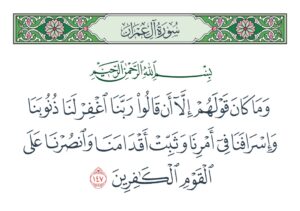 سُورَةُ آلِ عِمْرَان
بِسْمِ ٱللَّهِ ٱلرَّحْمَٰنِ ٱلرَّحِيمِ
وَمَا كَانَ قَوْلَهُمْ إِلَّآ أَن قَالُوا۟ رَبَّنَا ٱغْفِرْ لَنَا ذُنُوبَنَا
وَإِسْرَافَنَا فِىٓ أَمْرِنَا وَثَبِّتْ أَقْدَامَنَا وَٱنصُرْنَا عَلَى
ٱلْقَوْمِ ٱلْكَٰفِرِينَ ١٤٧